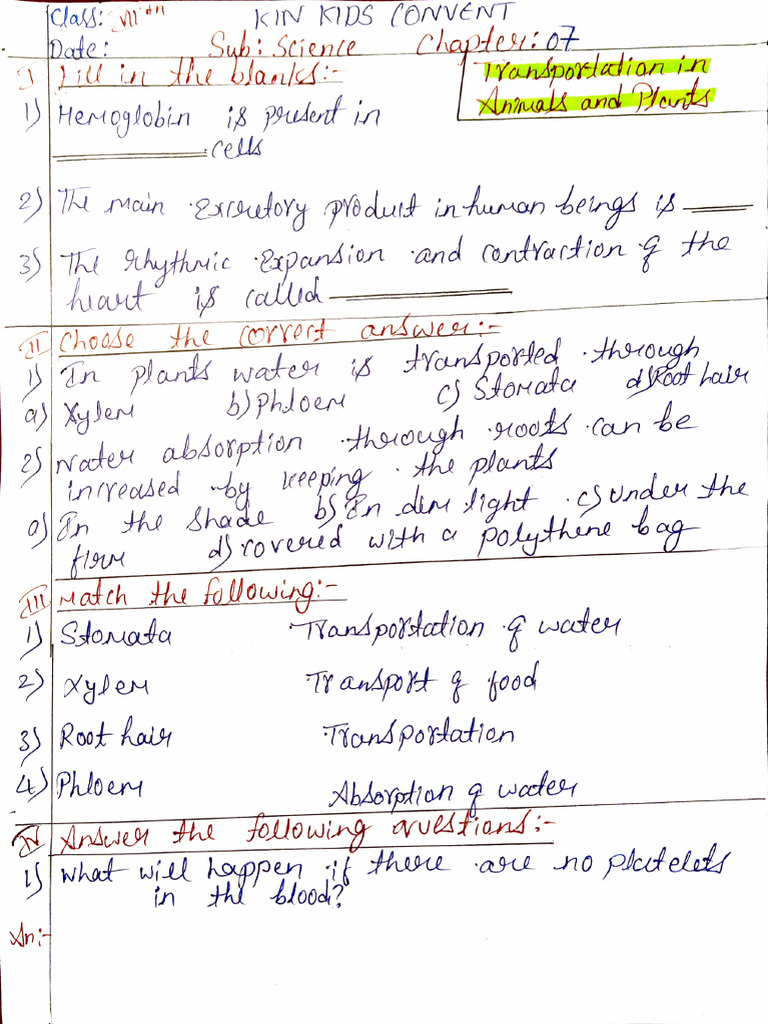 Class: VII th KIN KIDS CONVENT
Date: Sub: Science Chapter: 07
Transportation in
Animals and Plants
I Fill in the blanks:-
1) Hemoglobin is present in
__________ cells
2) The main excretory product in human beings is ____
3) The rhythmic expansion and contraction of the
heart is called __________
II Choose the correct answer:-
1) In plants water is transported through
a) Xylem b) Phloem c) Stomata d) Root hair
2) Water absorption through roots can be
increased by keeping the plants
a) In the shade b) In dim light c) Under the
firm d) covered with a polythene bag
III Match the following:-
1) Stomata Transportation of water
2) Xylem Transport of food
3) Root hair Transportation
4) Phloem Absorption of water
IV Answer the following questions:-
1) What will happen if there are no platelets
in the blood?
An:-